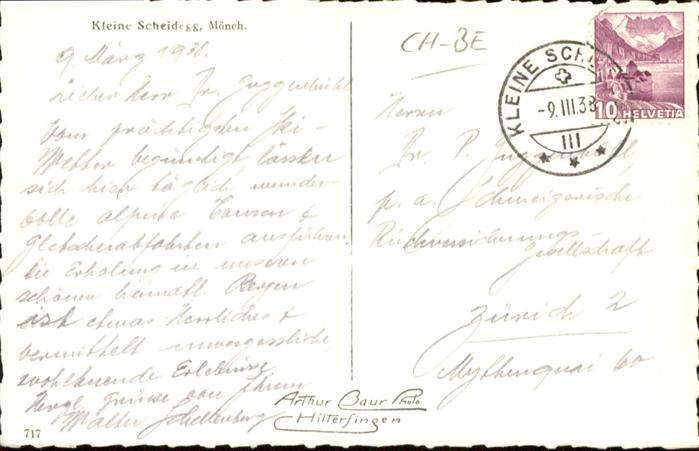 Kleine Scheidegg, Mönch.
9 März 1938.
Lieber Herr Dr. Guggenbühl
Vom prächtigsten Ski-
Wetter begünstigt, lassen
sich hier täglich wunder-
volle alpine Touren &
Gletscherabfahrten ausführen.
Die Erholung in unseren
schönen heimatl. Bergen
ist etwas Herrliches &
vermittelt unvergessliche
wohltuende Erlebnisse
Herzl. Grüsse von Ihrem
Walter Schellenberg
717
CH-BE
KLEINE SCH
-9.III.38
III
10 HELVETIA
Herrn
Dr. P. Guggenbühl
p. a. Schweizerische
Rückversicherungs-
Gesellschaft
Zürich 2
Mythenquai 60
Arthur Baur Photo
Hilterfingen